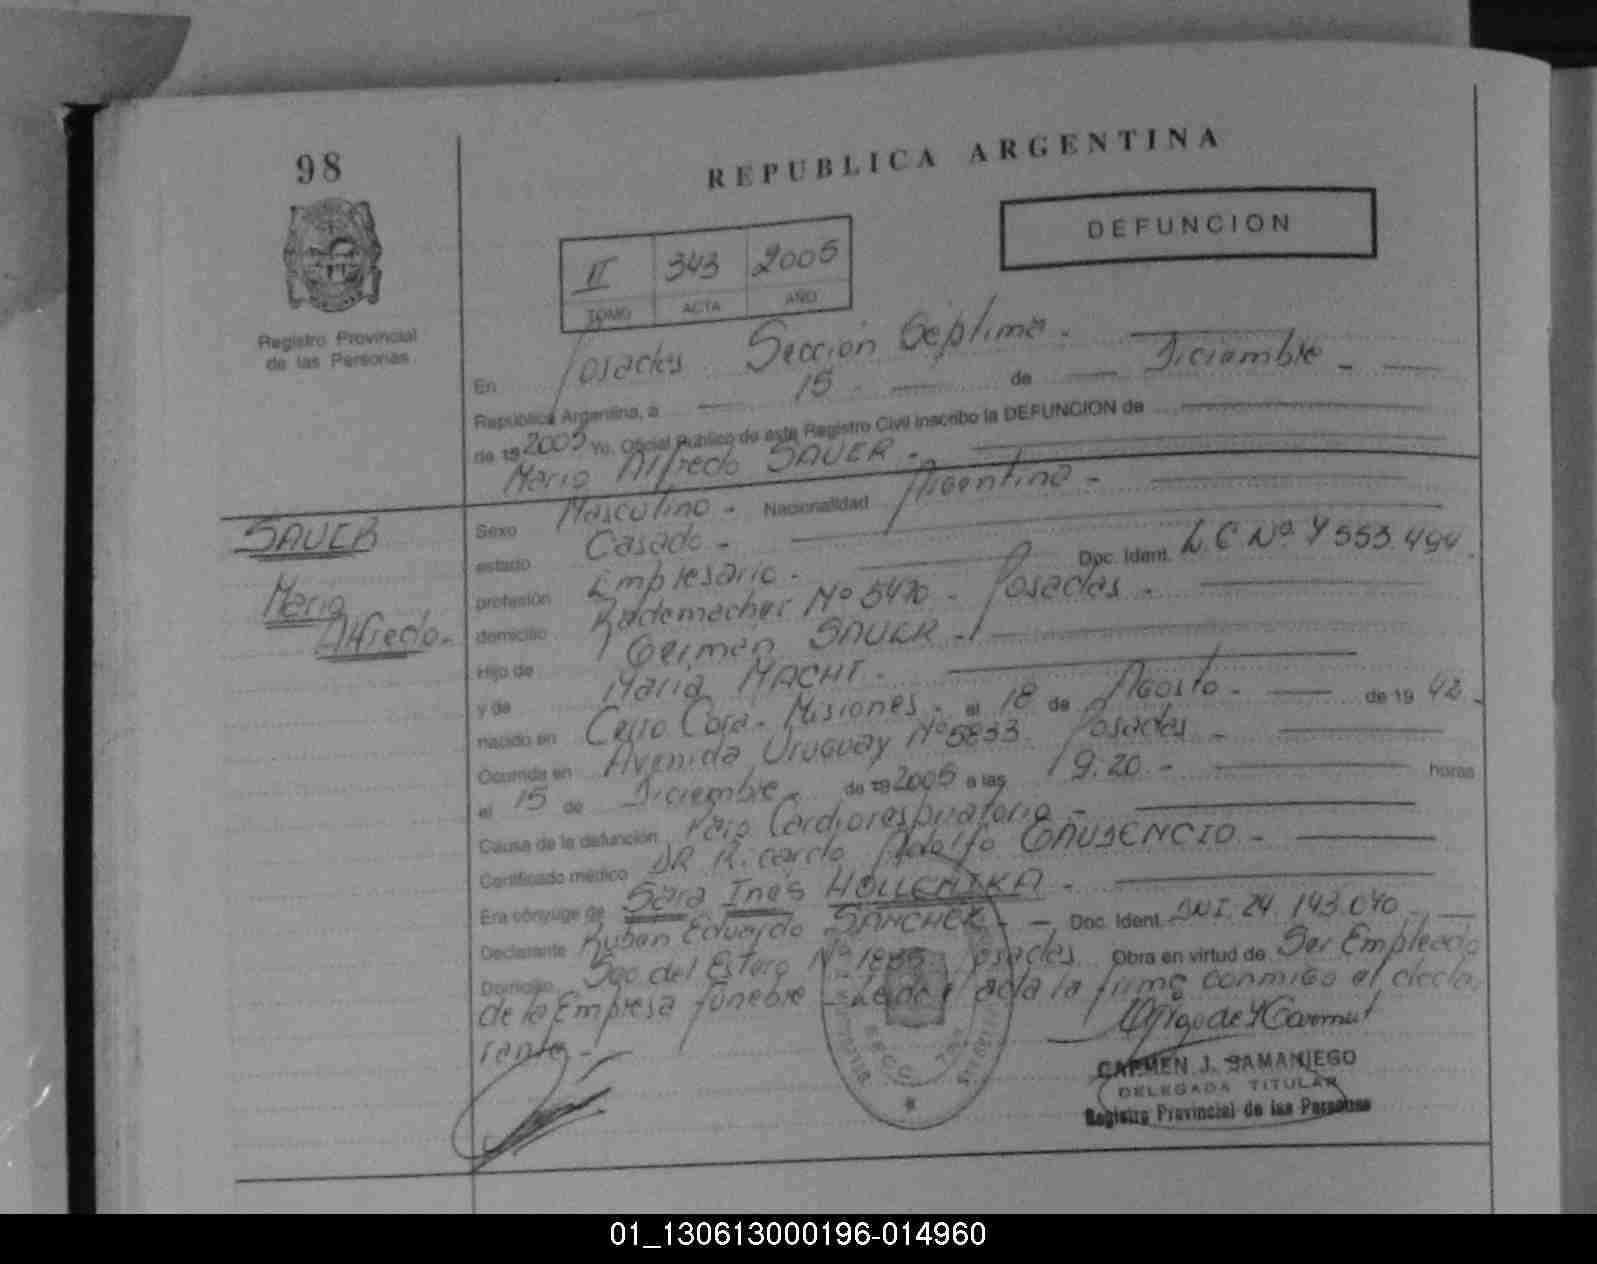 98
REPUBLICA ARGENTINA
Registro Provincial
de las Personas
DEFUNCION
II 343 2005
TOMO ACTA AÑO
En Posadas Sección Séptima.
República Argentina, a 15 de Diciembre
de 19 2005 Yo, Oficial Público de este Registro Civil inscribo la DEFUNCION de
Mario Alfredo SAUER.
SAUER
Mario
Alfredo.
Sexo Masculino - Nacionalidad Argentina -
estado Casado - Doc. Ident. L.C Nº 7553.494.
profesión Empresario.
domicilio Rademacher Nº 5470 - Posadas -
Hijo de German SAUER -
y de Maria MACHT.
nacido en Cerro Cora - Misiones - el 18 de Agosto - de 19 42.
Ocurrida en Avenida Uruguay Nº 5833 Posadas -
el 15 de Diciembre - de 19 2005 a las 19:20.- horas
Causa de la defunción Paro Cardiorespiratorio -
Certificado médico DR Ricardo Adolfo
Era cónyuge de Sara Ines
Declarante Ruben Eduardo - Doc. Ident. DNI. 24.143.040
Domicilio Sgo del Estero Nº Posadas Obra en virtud de Ser Empleado
de la Empresa fúnebre - Leida el acta la firma conmigo el decla
rante.-
CARMEN J. SAMANIEGO
DELEGADA TITULAR
Registro Provincial de las Personas
01_130613000196-014960